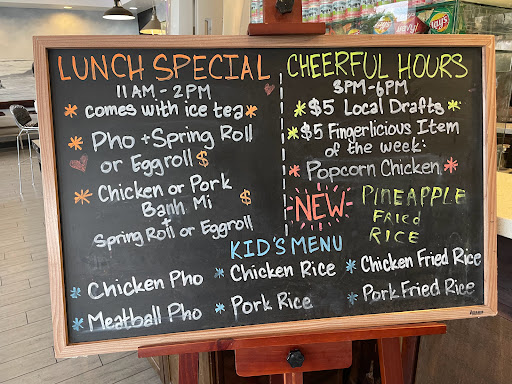 LUNCH SPECIAL
11AM-2PM
* comes with ice tea *
* Pho + Spring Roll
or Eggroll $
* Chicken or Pork $
Banh Mi
+
Spring Roll or Eggroll
CHEERFUL HOURS
3PM-6PM
* $5 Local Drafts *
* $5 Fingerlicious Item
of the week:
* Popcorn Chicken *
NEW
PINEAPPLE
FRied
RICE
KID'S MENU
* Chicken Pho
* Chicken Rice
* Chicken Fried Rice
* Meatball Pho
* Pork Rice
* Pork Fried Rice
Lay's